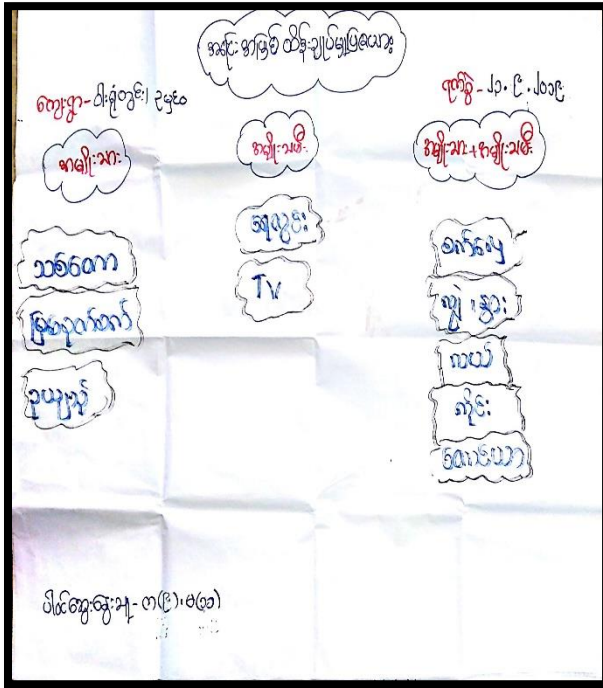 အရင်းအမြစ် ထိန်းချုပ်မှုပြဇယား
ကျေးရွာ - ဝါးရုံတွင်း၊
ရက်စွဲ - ၂၁.၉.၂၀၁၉
အမျိုးသား
အမျိုးသမီး
အမျိုးသား + အမျိုးသမီး
သစ်တော
မြက်ခုတ်စက်
ဥယျာဉ်
ရေလွင်း
TV
စက်လှေ
လှည်း၊ နွား
လယ်
ကိုင်း
တောင်ယာ
ပါဝင်ဆွေးနွေးသူ - က(၉)၊ မ(၁၁)